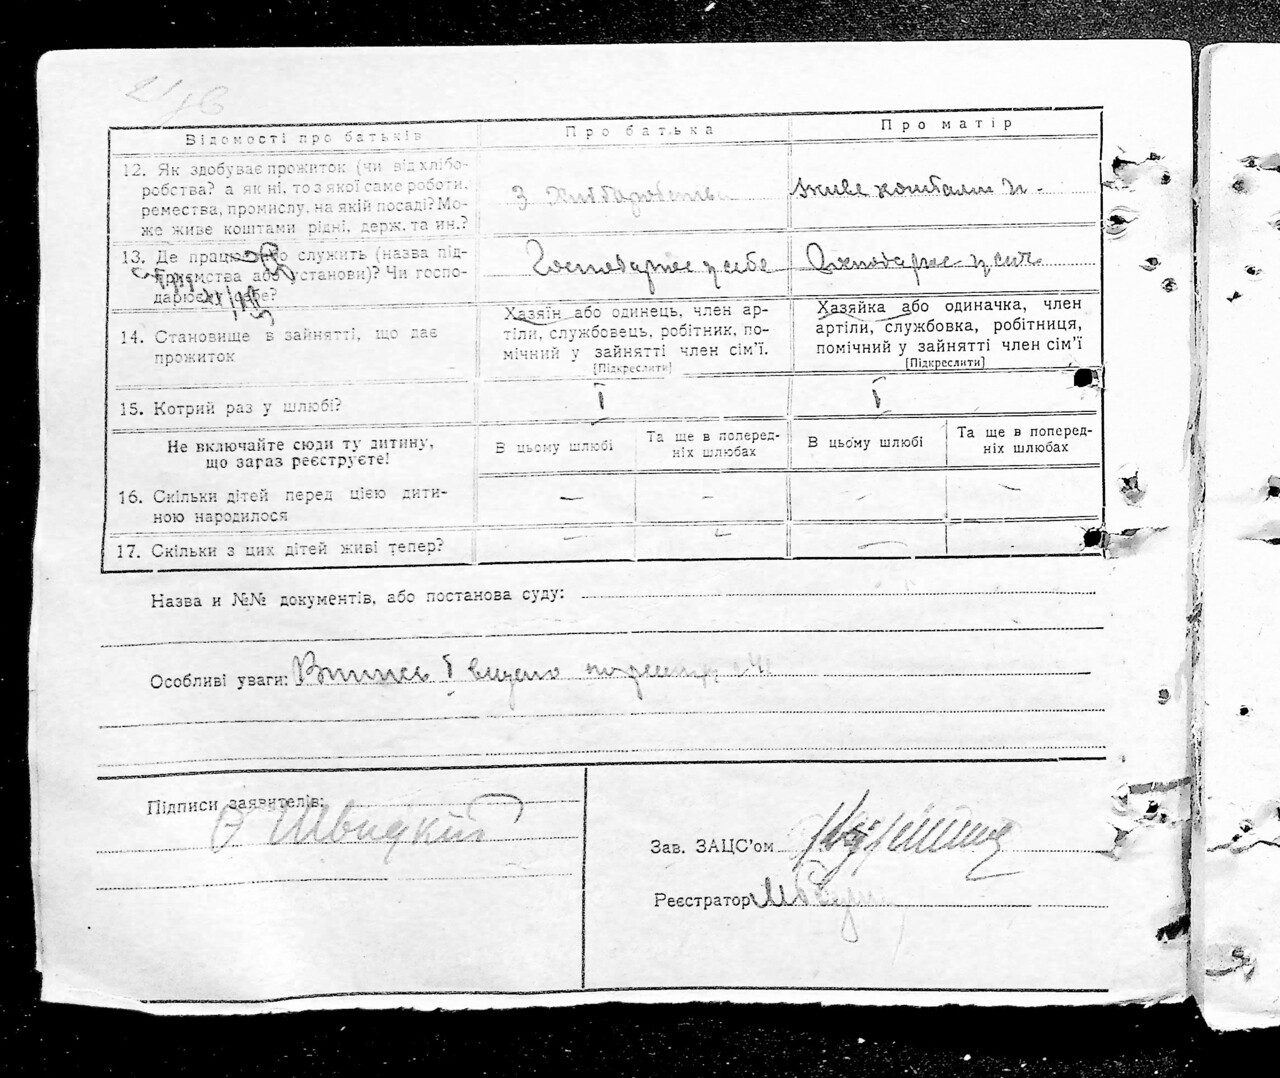 Відомості про батьків
Про батька
Про матір
12. Як здобуває прожиток (чи від хлібо-
робства? а як ні, то з якої саме роботи,
ремества, промислу, на якій посаді? Мо-
же живе коштами рідні, держ. та ин.?
З Хліборобства
живе коштами
13. Де працює або служить (назва під-
приємства або установи)? Чи госпо-
дарює у себе?
Господарює у себе
Господарює у
14. Становище в зайнятті, що дає
прожиток
Хазяїн або одинець, член ар-
тіли, службовець, робітник, по-
мічний у зайнятті член сім'ї.
[Підкреслити]
Хазяйка або одиначка, член
артіли, службовка, робітниця,
помічний у зайнятті член сім'ї
[Підкреслити]
15. Котрий раз у шлюбі?
I
I
Не включайте сюди ту дитину,
що зараз реєструєте!
В цьому шлюбі
Та ще в поперед-
ніх шлюбах
В цьому шлюбі
Та ще в поперед-
ніх шлюбах
16. Скільки дітей перед цією дити-
ною народилося
—
—
—
—
17. Скільки з цих дітей живі тепер?
—
—
—
Назва и №№ документів, або постанова суду:
Особливі уваги: Випись видано по реєстру
Підписи заявителів:
Швидкій
Зав. ЗАЦС'ом
Реєстратор